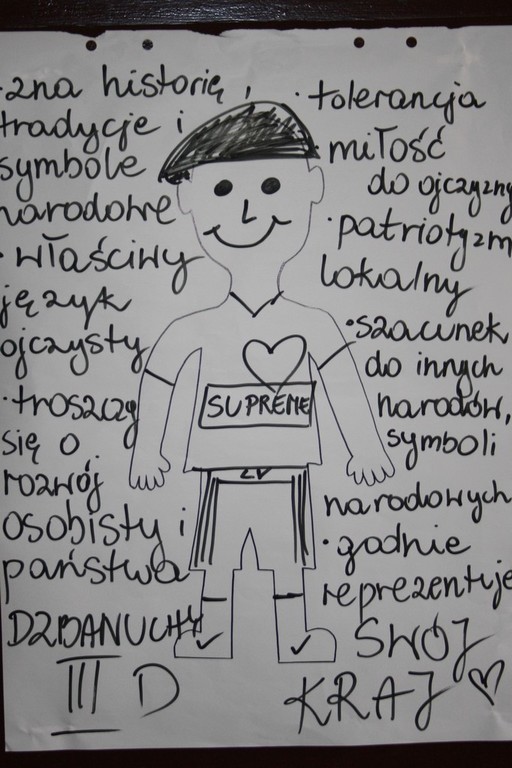 · zna historię,
tradycje i
symbole
narodowe
· właściwy
język
ojczysty
· troszczy
się o
rozwój
osobisty i
państwa
DZBANUCHY
III D
· tolerancja
miłość
do ojczyzny
· patriotyzm
lokalny
· szacunek
do innych
narodów,
symboli
narodowych
· godnie
reprezentuje
SWÓJ
KRAJ
SUPREME
LV